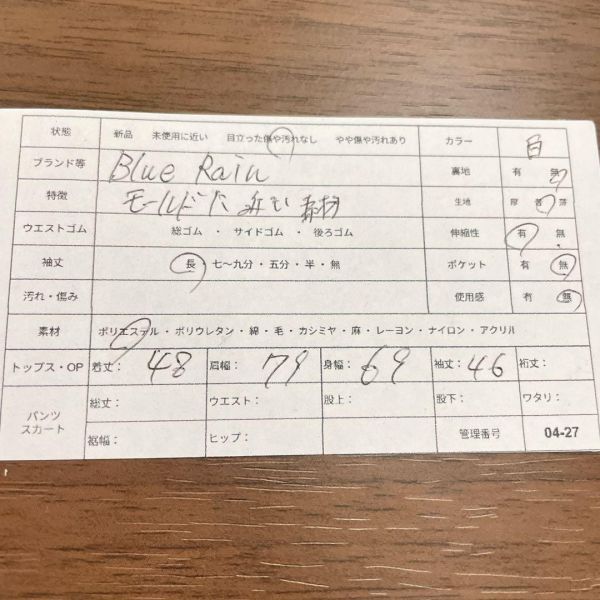 状態 新品 未使用に近い 目立った傷や汚れなし やや傷や汚れあり カラー 白
ブランド等 Blue Rain 裏地 有 無
特徴 モールドに近い素材 生地 厚 普 薄
ウエストゴム 総ゴム ・ サイドゴム ・ 後ろゴム 伸縮性 有 ・ 無
袖丈 長・七〜九分・五分・半・無 ポケット 有 無
汚れ・傷み 使用感 有 無
素材 ポリエステル・ポリウレタン・綿・毛・カシミヤ・麻・レーヨン・ナイロン・アクリル
トップス・OP 着丈: 48 肩幅: 79 身幅: 69 袖丈: 46 裄丈:
パンツ スカート 総丈: ウエスト: 股上: 股下: ワタリ:
裾幅: ヒップ: 管理番号 04-27